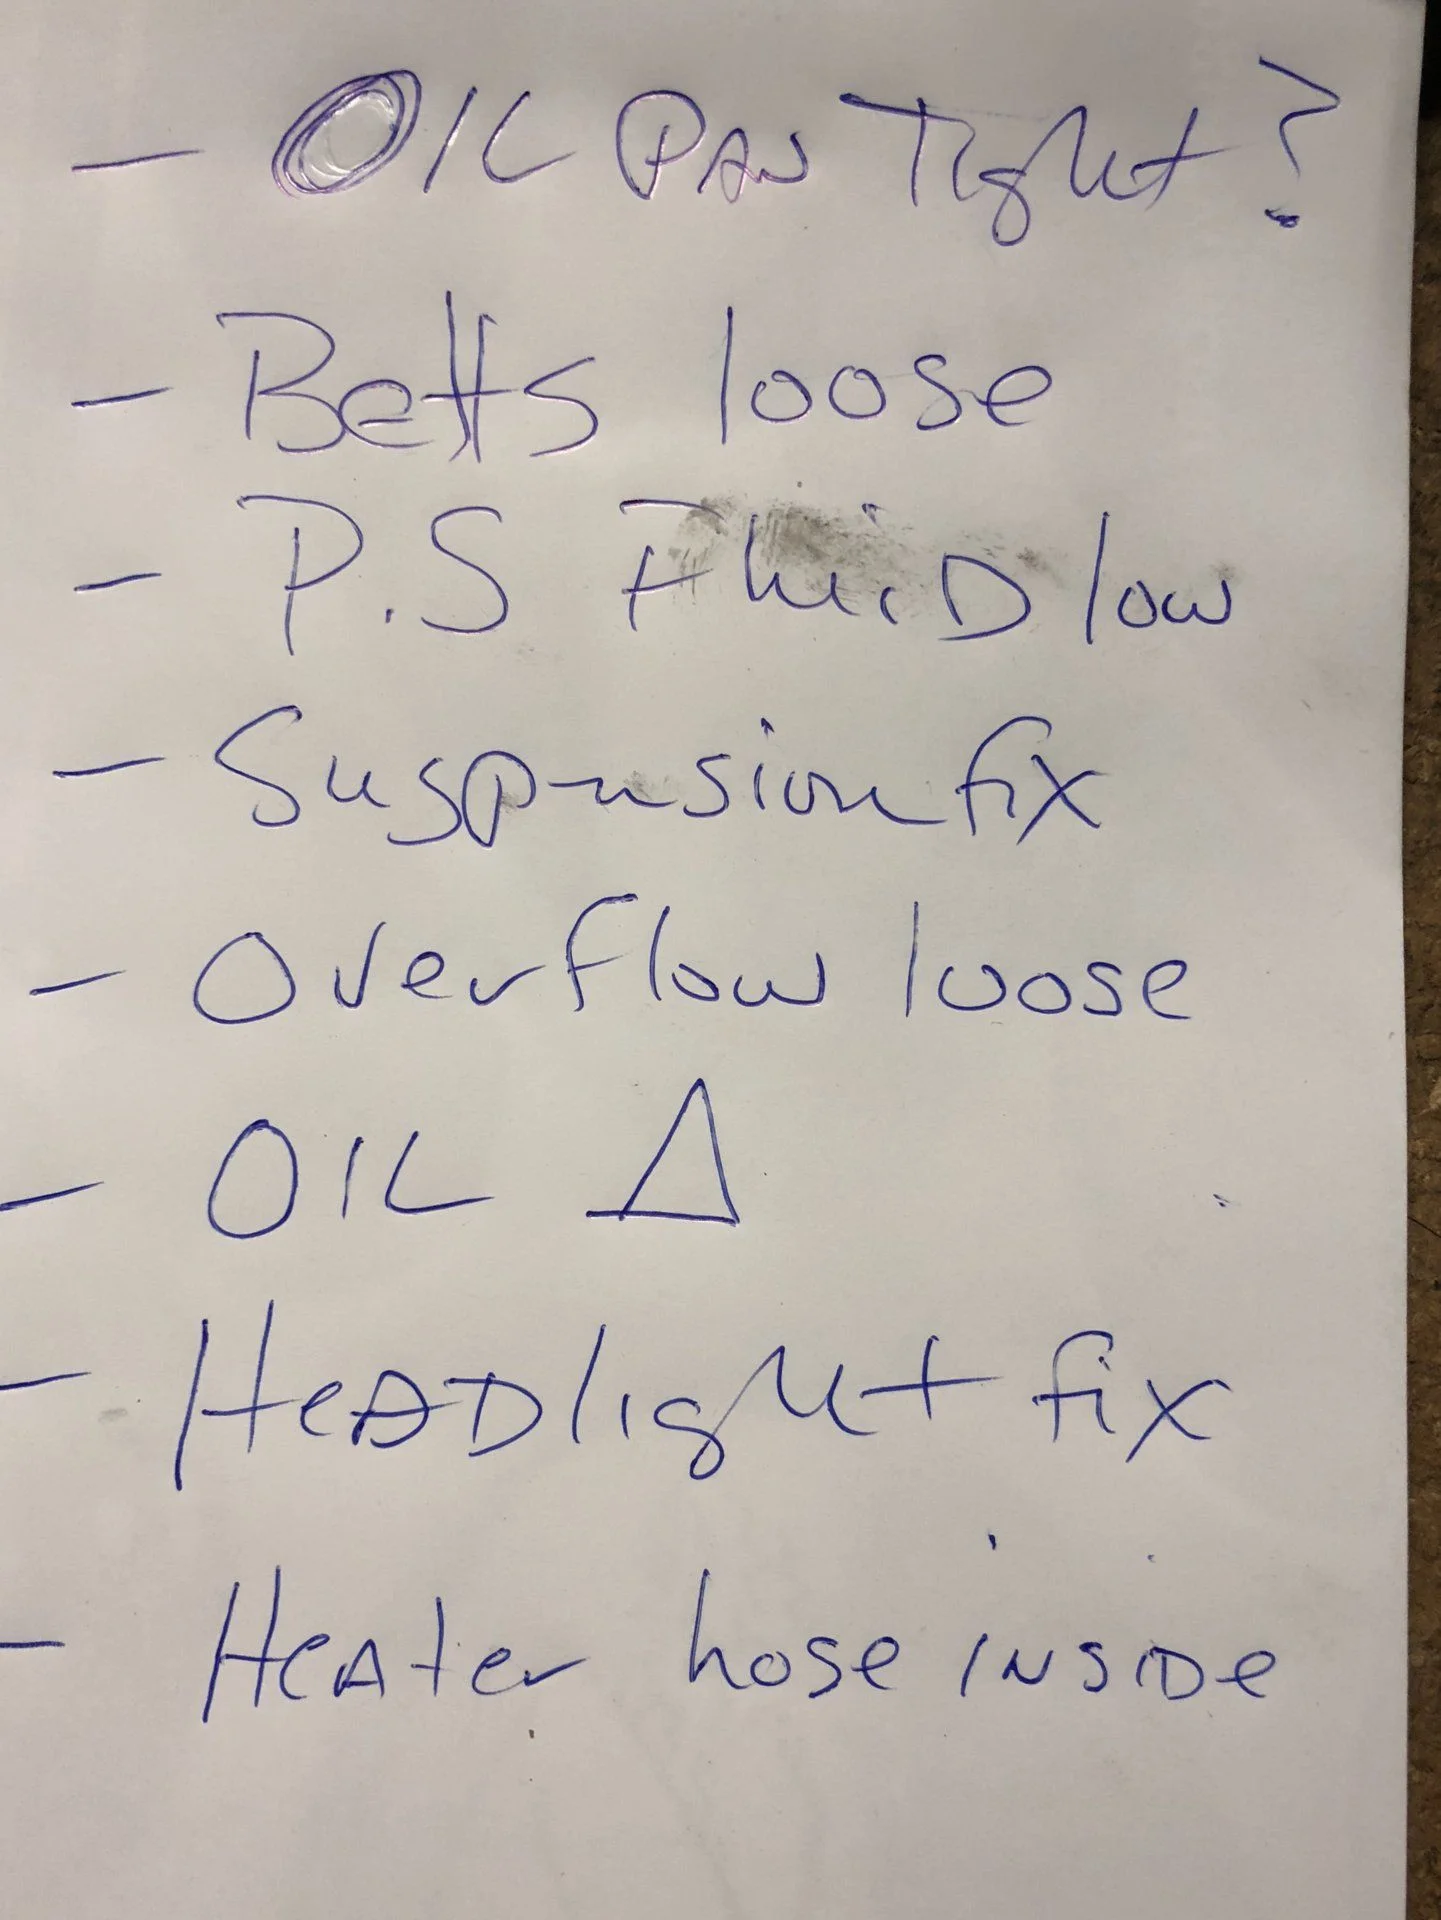 - OIL PAN Tight?
- Belts loose
- P.S Fluid low
- Suspension fix
- Overflow loose
- OIL Δ
- HeADlight fix
- HeAter hose INSIDe